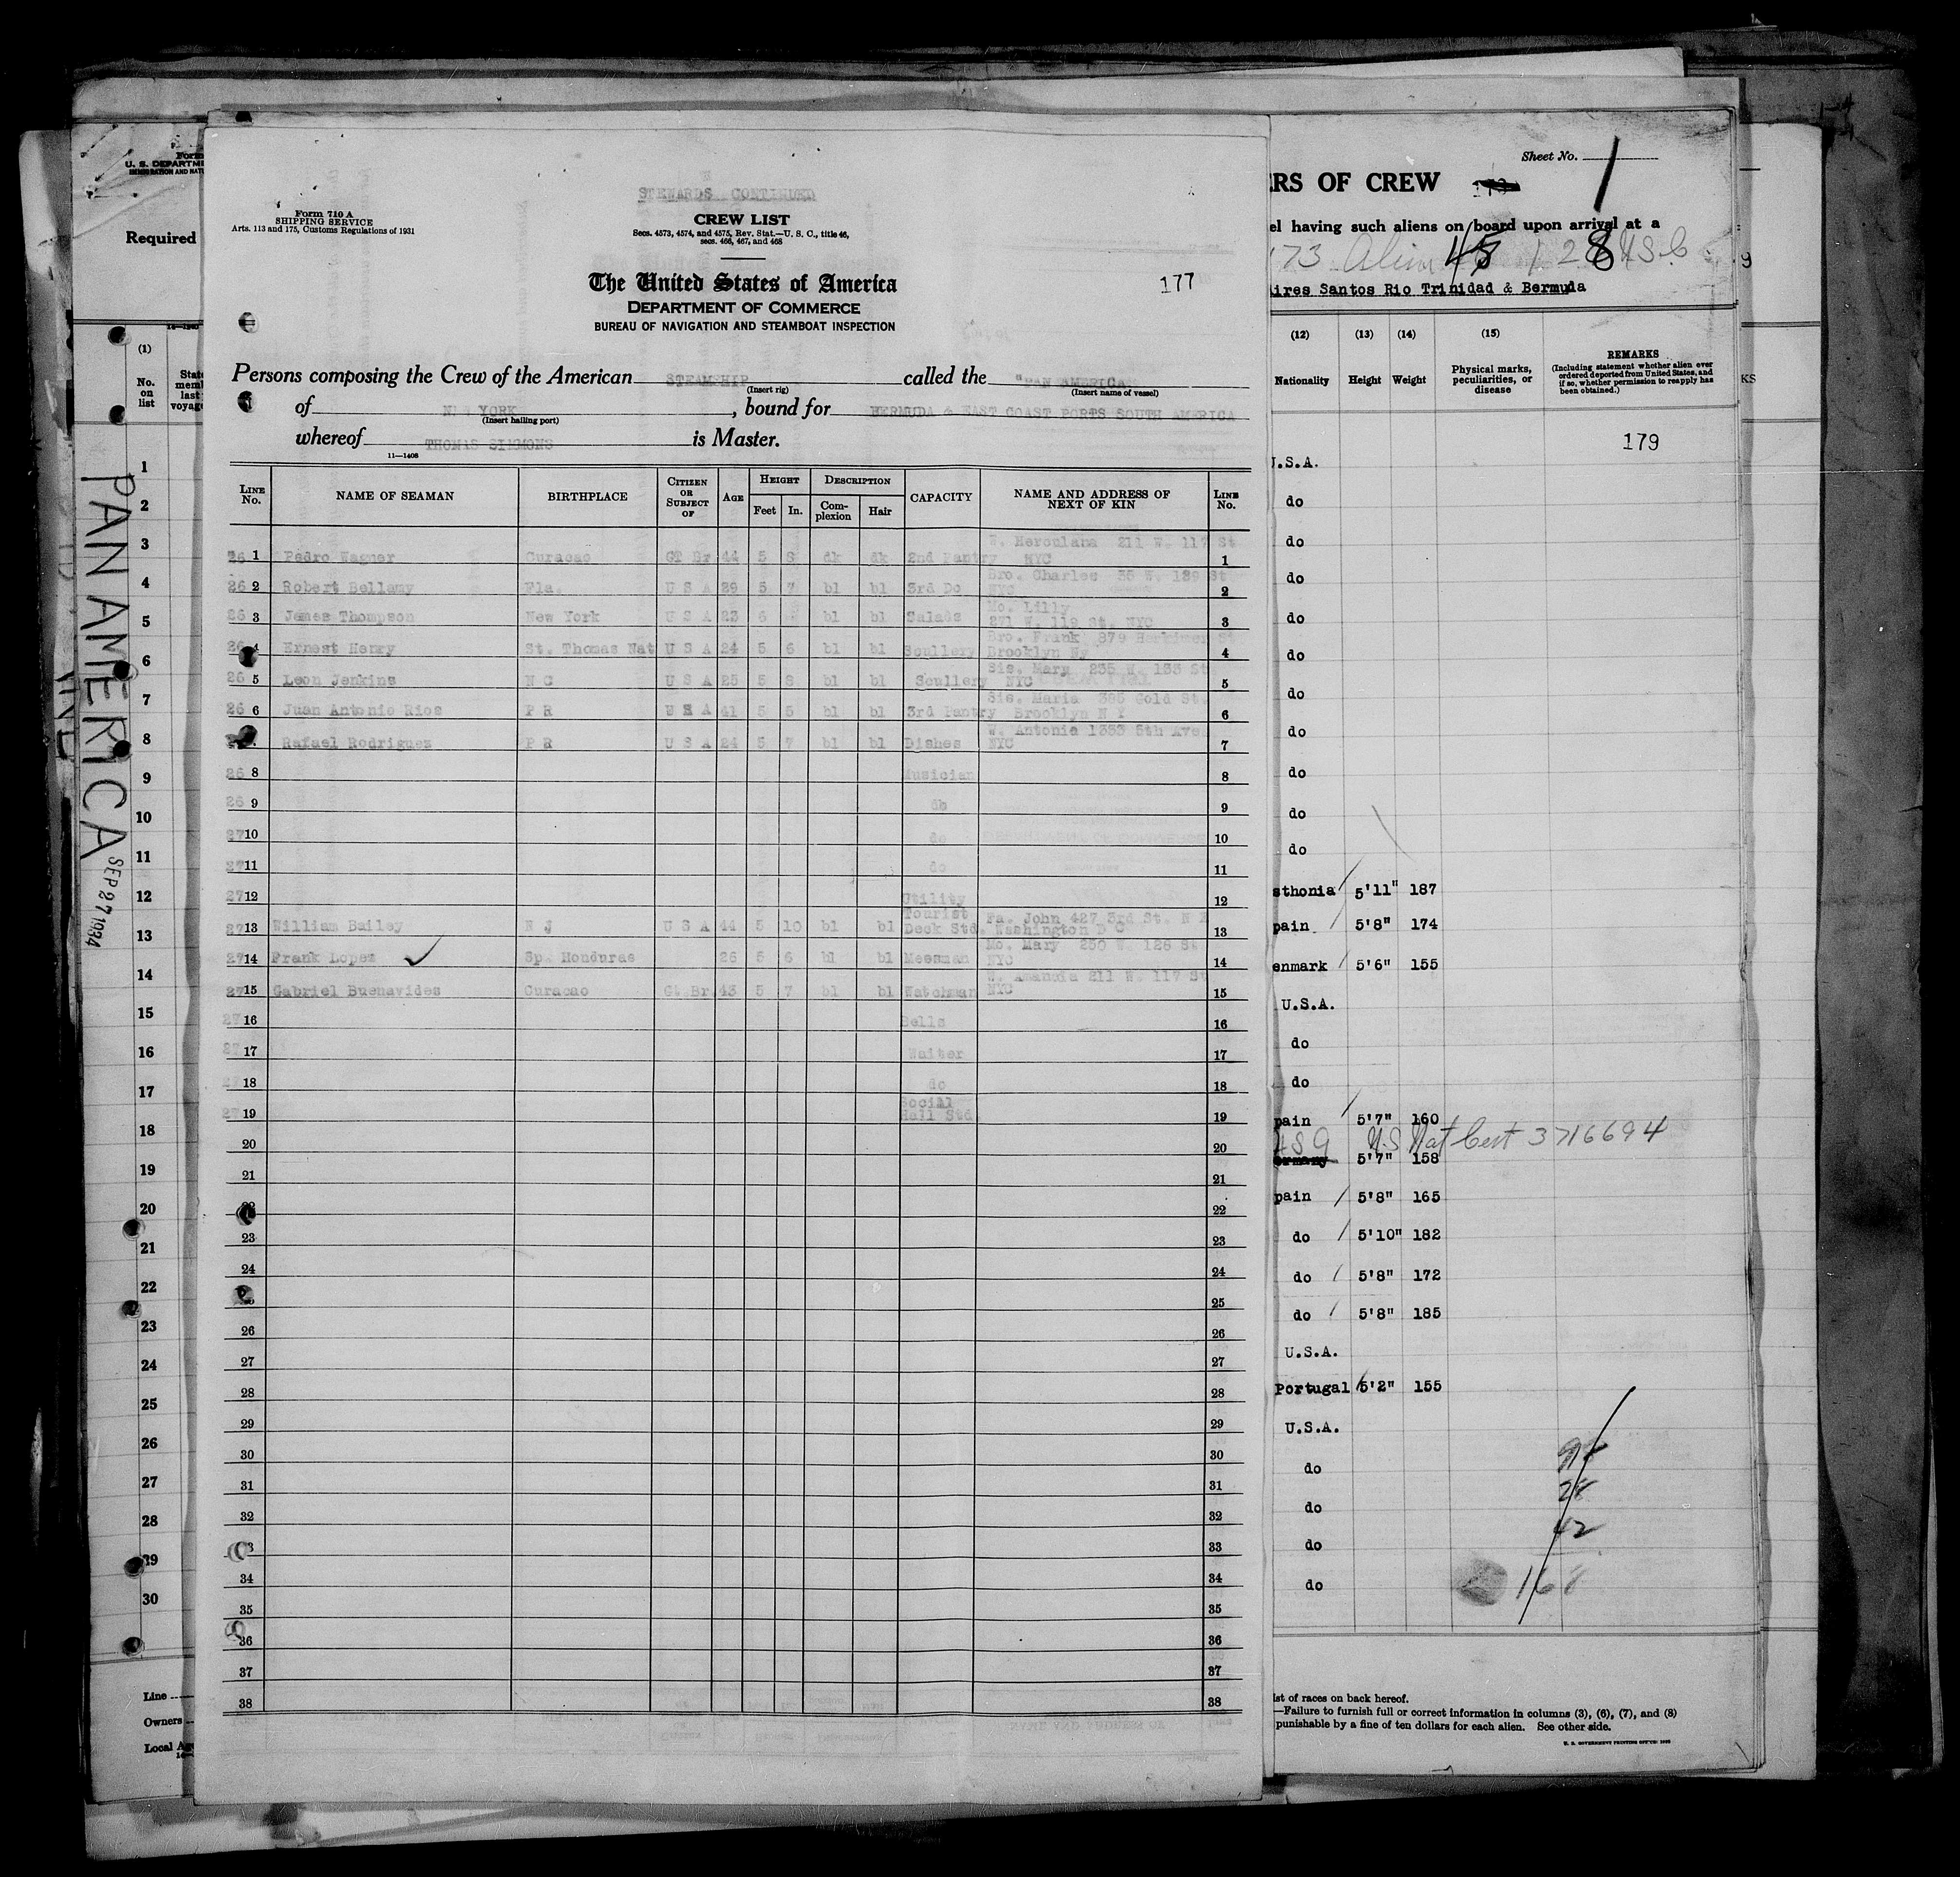 STEWARDS CONTINUED
Form 710 A
SHIPPING SERVICE
Arts. 113 and 175, Customs Regulations of 1931
CREW LIST
Secs. 4573, 4574, and 4575, Rev. Stat.—U. S. C., title 46,
secs. 466, 467, and 468
The United States of America
DEPARTMENT OF COMMERCE
BUREAU OF NAVIGATION AND STEAMBOAT INSPECTION
177
Persons composing the Crew of the American STEAMSHIP called the "PAN AMERICA"
(Insert rig) (Insert name of vessel)
of NEW YORK, bound for BERMUDA & EAST COAST PORTS SOUTH AMERICA
(Insert hailing port)
whereof THOMAS SIMMONS is Master.
11—1408
LINE No. NAME OF SEAMAN BIRTHPLACE CITIZEN OR SUBJECT OF AGE HEIGHT Feet In. DESCRIPTION Complexion Hair CAPACITY NAME AND ADDRESS OF NEXT OF KIN LINE No.
26 1 Pedro Wagner Curacao GT Br 44 5 8 dk dk 2nd Pantry W. Herculana 211 W. 117 St NYC 1
26 2 Robert Bellamy Fla. U S A 29 5 7 bl bl 3rd Do Bro. Charles 35 W. 129 St NYC 2
26 3 James Thompson New York U S A 23 6 bl bl Salads Mo. Lilly 271 W. 119 St. NYC 3
26 4 Ernest Henry St. Thomas Nat U S A 24 5 6 bl bl Scullery Bro. Frank 879 Herkimer St Brooklyn Ny 4
26 5 Leon Jenkins N C U S A 25 5 8 bl bl Scullery Sis. Mary 235 W. 133 St NYC 5
26 6 Juan Antonio Rios P R U S A 41 5 5 bl bl 3rd Pantry Sis. Maria 385 Gold St. Brooklyn N Y 6
Rafael Rodriguez P R U S A 24 5 7 bl bl Dishes W. Antonia 1333 5th Ave NYC 7
26 8 Musician 8
26 9 do 9
27 10 do 10
27 11 do 11
27 12 Utility 12
27 13 William Bailey N J U S A 44 5 10 bl bl Tourist Deck Std. Fa. John 427 3rd St. N E Washington D C 13
27 14 Frank Lopez ✓ Sp. Honduras 26 5 6 bl bl Messman Mo. Mary 250 W. 128 St NYC 14
27 15 Gabriel Buenavides Curacao Gt.Br. 43 5 7 bl bl Watchman W. Amanda 211 W. 117 St NYC 15
27 16 Bells 16
27 17 Waiter 17
18 do 18
27 19 Social Hall Std. 19
20 20
21 21
22
23 23
24 24
25
26 26
27 27
28 28
29 29
30 30
31 31
32 32
33
34 34
35 35
36 36
37 37
38 38
Form
U. S. DEPARTM
IMMIGRATION AND NAT
Required
(1)
No. on list
State
memb
last
voyage
1
2
3
4
5
6
7
8
9
10
11
12
13
14
15
16
17
18
19
20
21
22
23
24
25
26
27
28
29
30
Line
Owners
Local Ag
PAN AMERICA
SEP 27 1934
Sheet No. 1
RS OF CREW
el having such aliens on board upon arrival at a
173 Alien 45 128 USC
ires Santos Rio Trinidad & Bermuda
(12) (13) (14) (15)
Nationality Height Weight Physical marks, peculiarities, or disease
REMARKS
(Including statement whether alien ever ordered deported from United States, and if so, whether permission to reapply has been obtained.)
KS
179
U.S.A.
do
do
do
do
do
do
do
do
do
do
sthonia 5'11" 187
pain 5'8" 174
enmark 5'6" 155
U.S.A.
do
do
pain 5'7" 160
U.S. Nat Cert 3716694
ermany 5'7" 158
pain 5'8" 165
do 5'10" 182
do 5'8" 172
do 5'8" 185
U.S.A.
Portugal 5'2" 155
U.S.A.
do
do
do 42
do 168
ist of races on back hereof.
—Failure to furnish full or correct information in columns (3), (6), (7), and (8)
punishable by a fine of ten dollars for each alien. See other side.